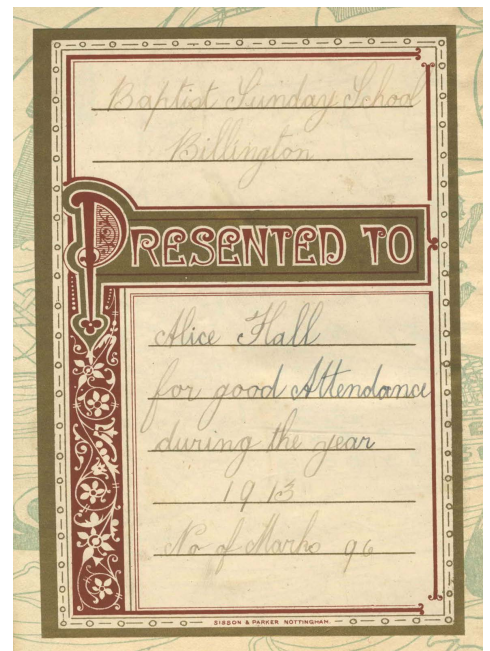 Baptist Sunday School
Billington
PRESENTED TO
Alice Hall
for good Attendance
during the year
1913
No of Marks 96
SISSON & PARKER NOTTINGHAM.